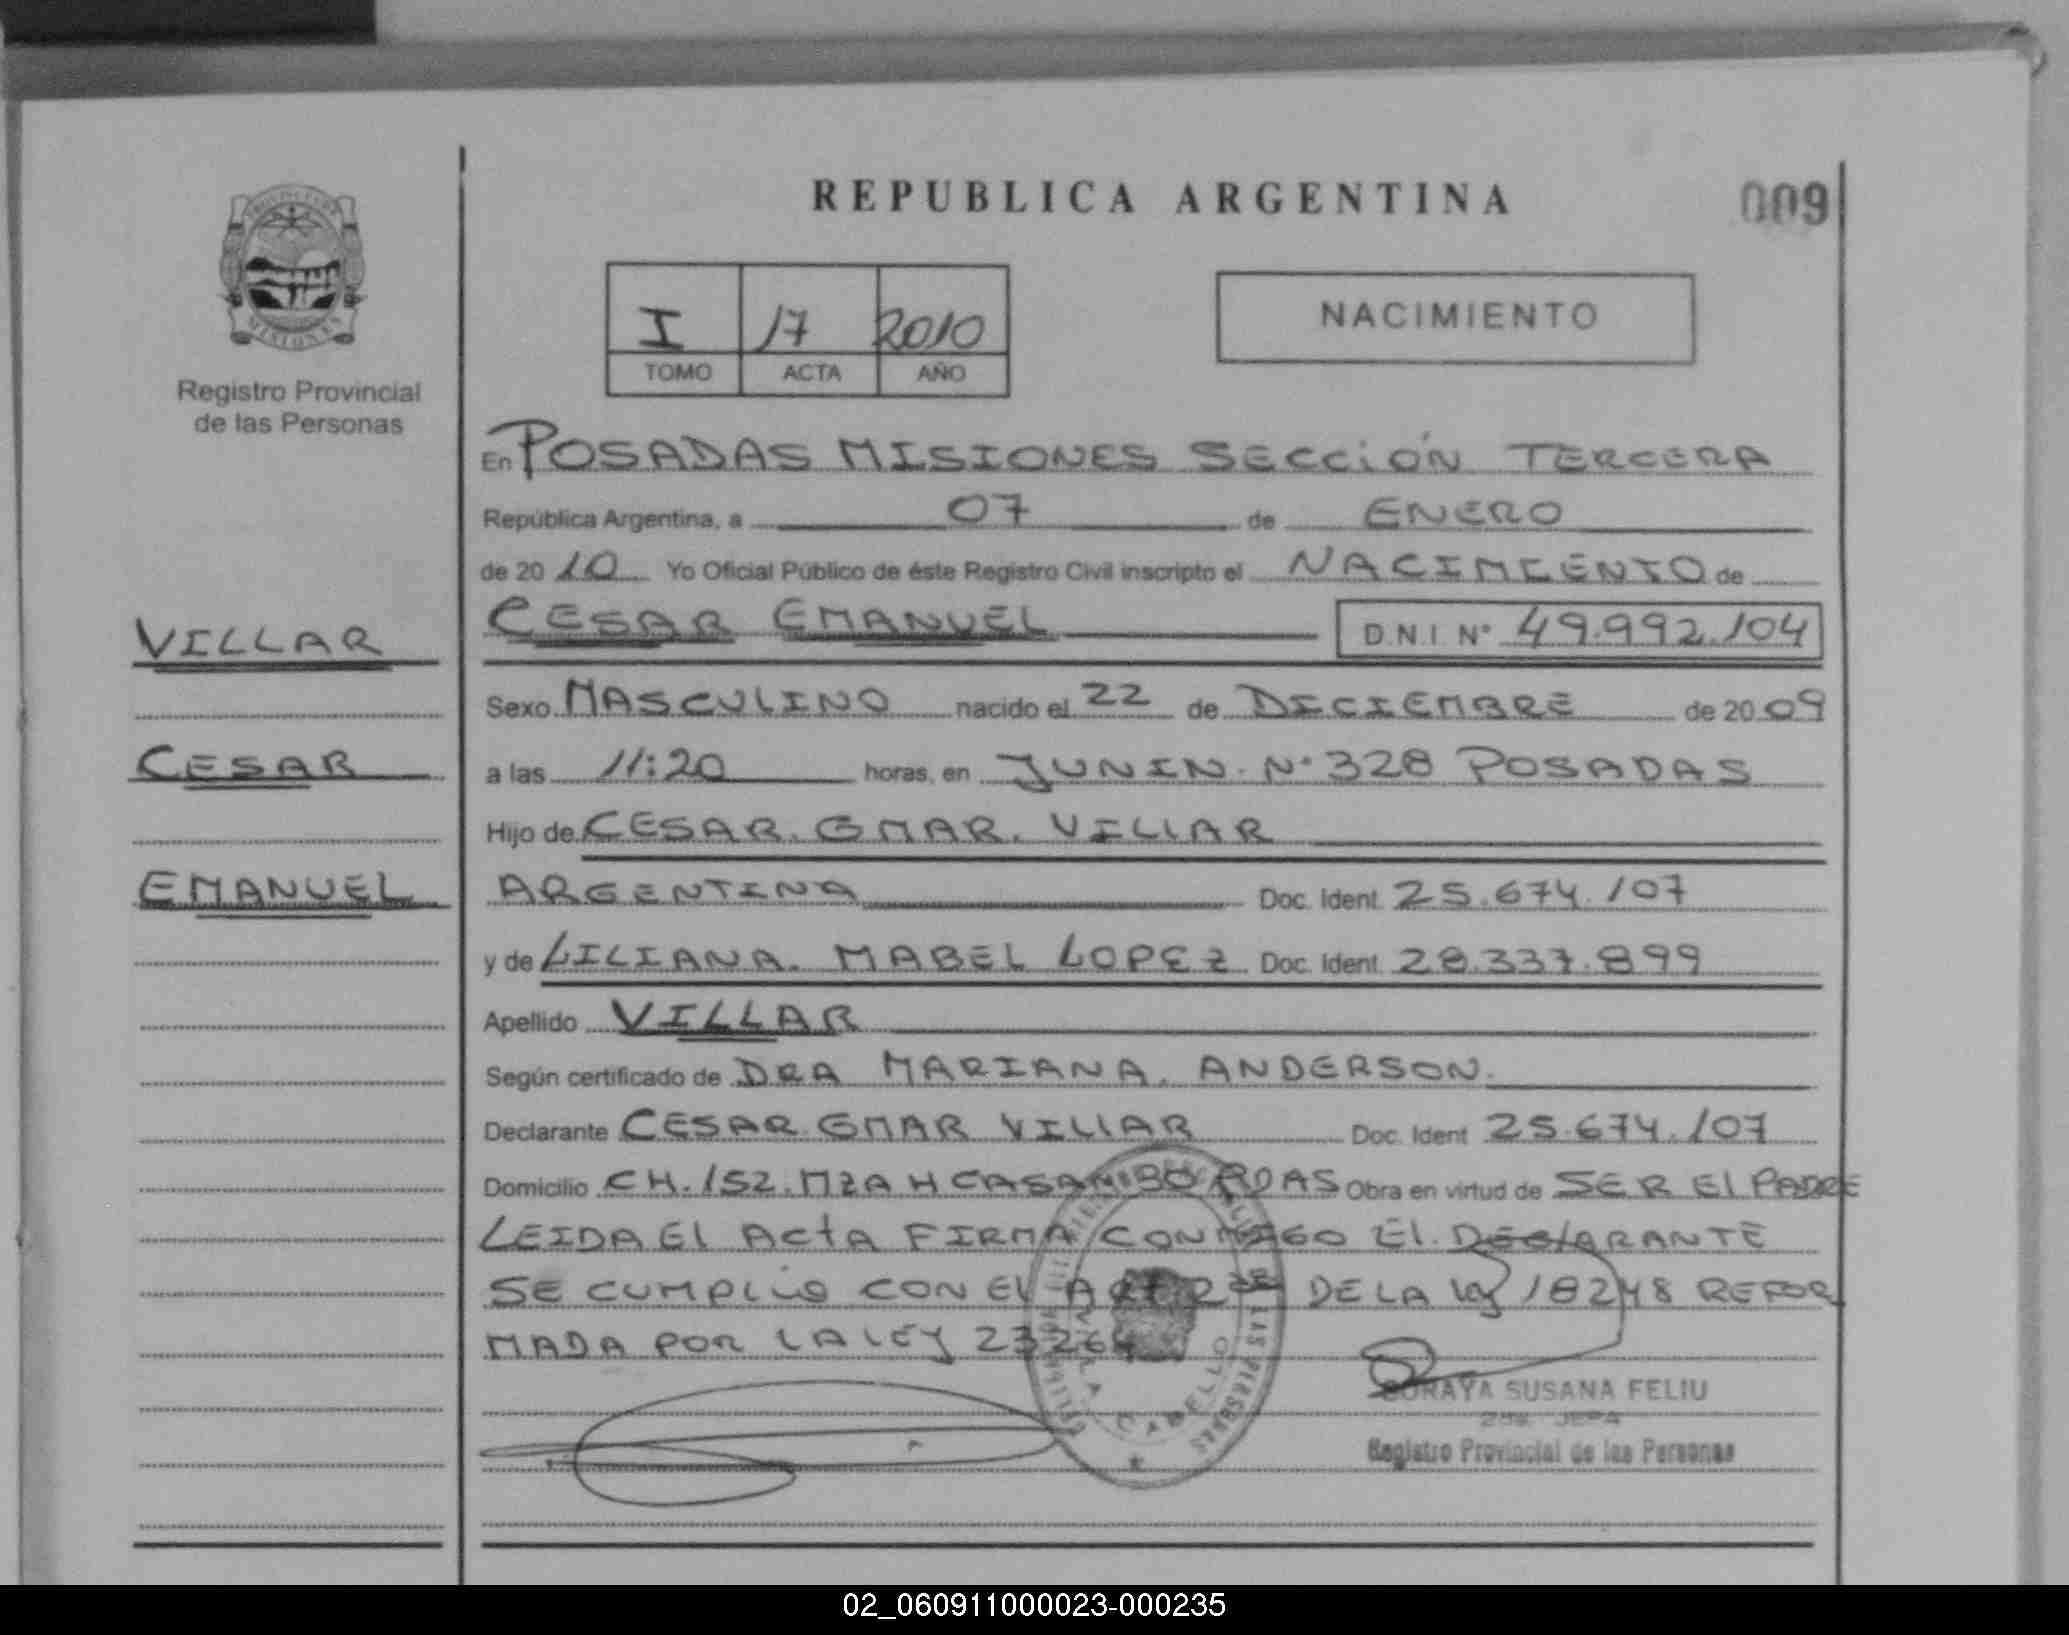 REPUBLICA ARGENTINA
009
PROVINCIA DE MISIONES
Registro Provincial
de las Personas
I 17 2010
TOMO ACTA AÑO
NACIMIENTO
En POSADAS MISIONES SECCIÓN TERCERA
República Argentina, a 07 de ENERO
de 20 10 Yo Oficial Público de éste Registro Civil inscripto el NACIMIENTO de
CESAR EMANUEL D.N.I Nº 49.992.104
VILLAR
CESAR
EMANUEL
Sexo MASCULINO nacido el 22 de DICIEMBRE de 20 09
a las 11:20 horas, en JUNIN. Nº 328 POSADAS
Hijo de CESAR. OMAR. VILLAR
ARGENTINA Doc. Ident. 25.674.107
y de LILIANA. MABEL LOPEZ Doc. Ident. 28.337.899
Apellido VILLAR
Según certificado de DRA MARIANA. ANDERSON.
Declarante CESAR OMAR VILLAR Doc. Ident 25.674.107
Domicilio CH. 152. MZA H CASA Obra en virtud de SER El PADRE
LEIDA El ActA FIRMA CONMIGO El. DEClARANTE
SE CUMPLIO CON EL DE LA ley 18248 REFOR
MADA POR LA LEY 23264
CABELLO
SORAYA SUSANA FELIU
2da. JEFA
Registro Provincial de las Personas
02_060911000023-000235